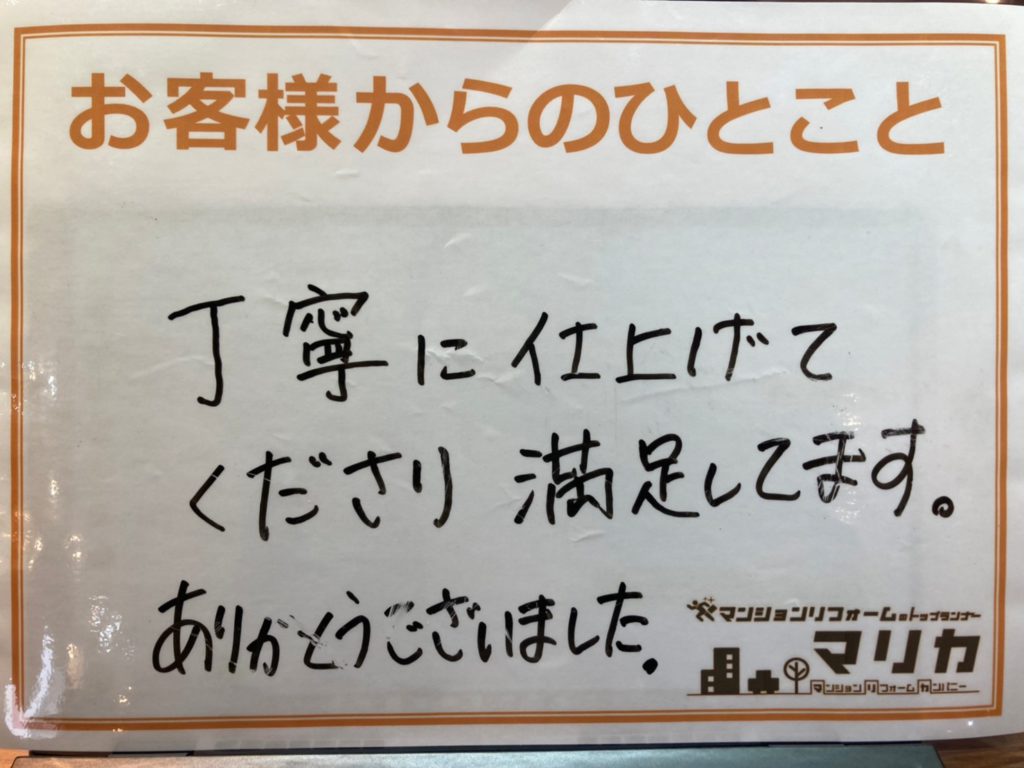 お客様からのひとこと
丁寧に仕上げて
くださり満足してます。
ありがとうございました。
マンションリフォームのトップランナー
マリカ
マンションリフォームカンパニー